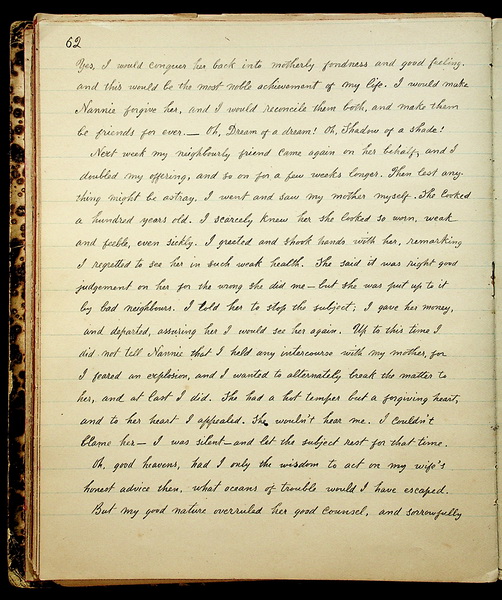 62
Yes, I would conquer her back into motherly fondness and good feeling.
and this would be the most noble achievement of my life. I would make
Nannie forgive her, and I would reconcile them both, and make them
be friends for ever. — Oh, Dream of a dream! Oh, Shadow of a shade!
Next week my neighbourly friend came again on her behalf, and I
doubled my offering, and so on for a few weeks longer. Then lest any-
thing might be astray, I went and saw my mother myself. She looked
a hundred years old. I scarcely knew her she looked so worn, weak
and feeble, even sickly. I greeted and shook hands with her, remarking
I regretted to see her in such weak health. She said it was right good
judgement on her for the wrong she did me — but she was put up to it
by bad neighbours. I told her to stop the subject; I gave her money,
and departed, assuring her I would see her again. Up to this time I
did not tell Nannie that I held any intercourse with my mother, for
I feared an explosion, and I wanted to alternately break the matter to
her, and at last I did. She had a hot temper but a forgiving heart,
and to her heart I appealed. She wouln't hear me. I couldn't
blame her — I was silent — and let the subject rest for that time.
Oh, good heavens, had I only the wisdom to act on my wife's
honest advice then, what oceans of trouble would I have escaped.
But my good nature overruled her good counsel, and sorrowfully